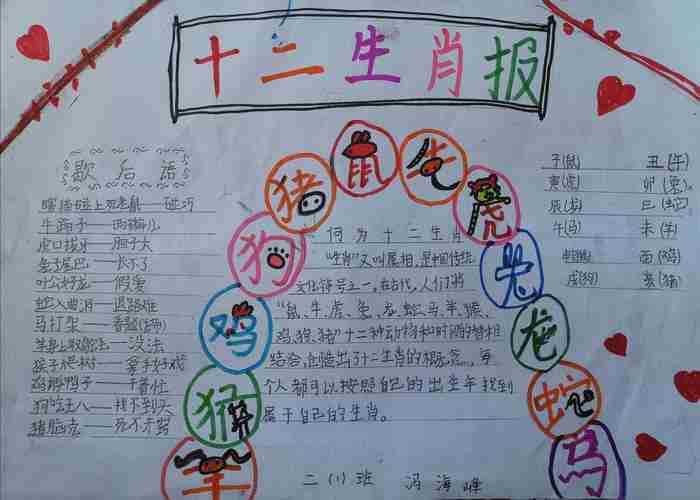 十二生肖报
歇后语
瞎猫碰上死老鼠——碰巧
牛蹄子——两瓣儿
虎口拔牙——胆子大
兔子尾巴——长不了
叶公好龙——假爱
蛇入曲洞——退路难
马打架——
羊身上取鸵毛——没法
猴子爬树——拿手好戏
鸡孵鸭子——干着忙
狗咬王八——找不到头
猪脑壳——死不开窍
鼠
牛
虎
兔
龙
蛇
马
羊
猴
鸡
狗
猪
何为十二生肖
"生肖"又叫属相,是中国传统
文化符号之一。在古代,人们将
"鼠、牛、虎、兔、龙、蛇、马、羊、猴、
鸡、狗、猪"十二种动物和时间的替相
结合,创造出了十二生肖的概念。每
个人都可以按照自己的出生年找到
属于自己的生肖。
子(鼠) 丑(牛)
寅(虎) 卯(兔)
辰(龙) 巳(蛇)
午(马) 未(羊)
申(猴) 酉(鸡)
戌(狗) 亥(猪)
二(1)班 冯海峰